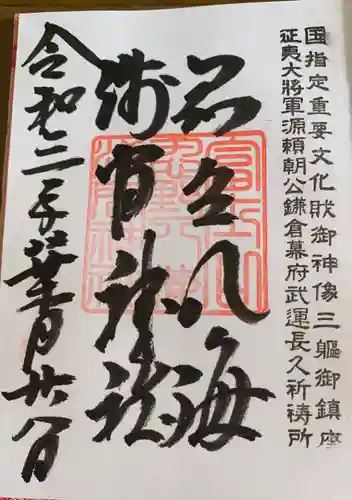 国指定重要文化財御神像三軀御鎮座
征夷大將軍源頼朝公鎌倉幕府武運長久祈祷所
忍野八海
浅間神社
令和三年葉月廿日